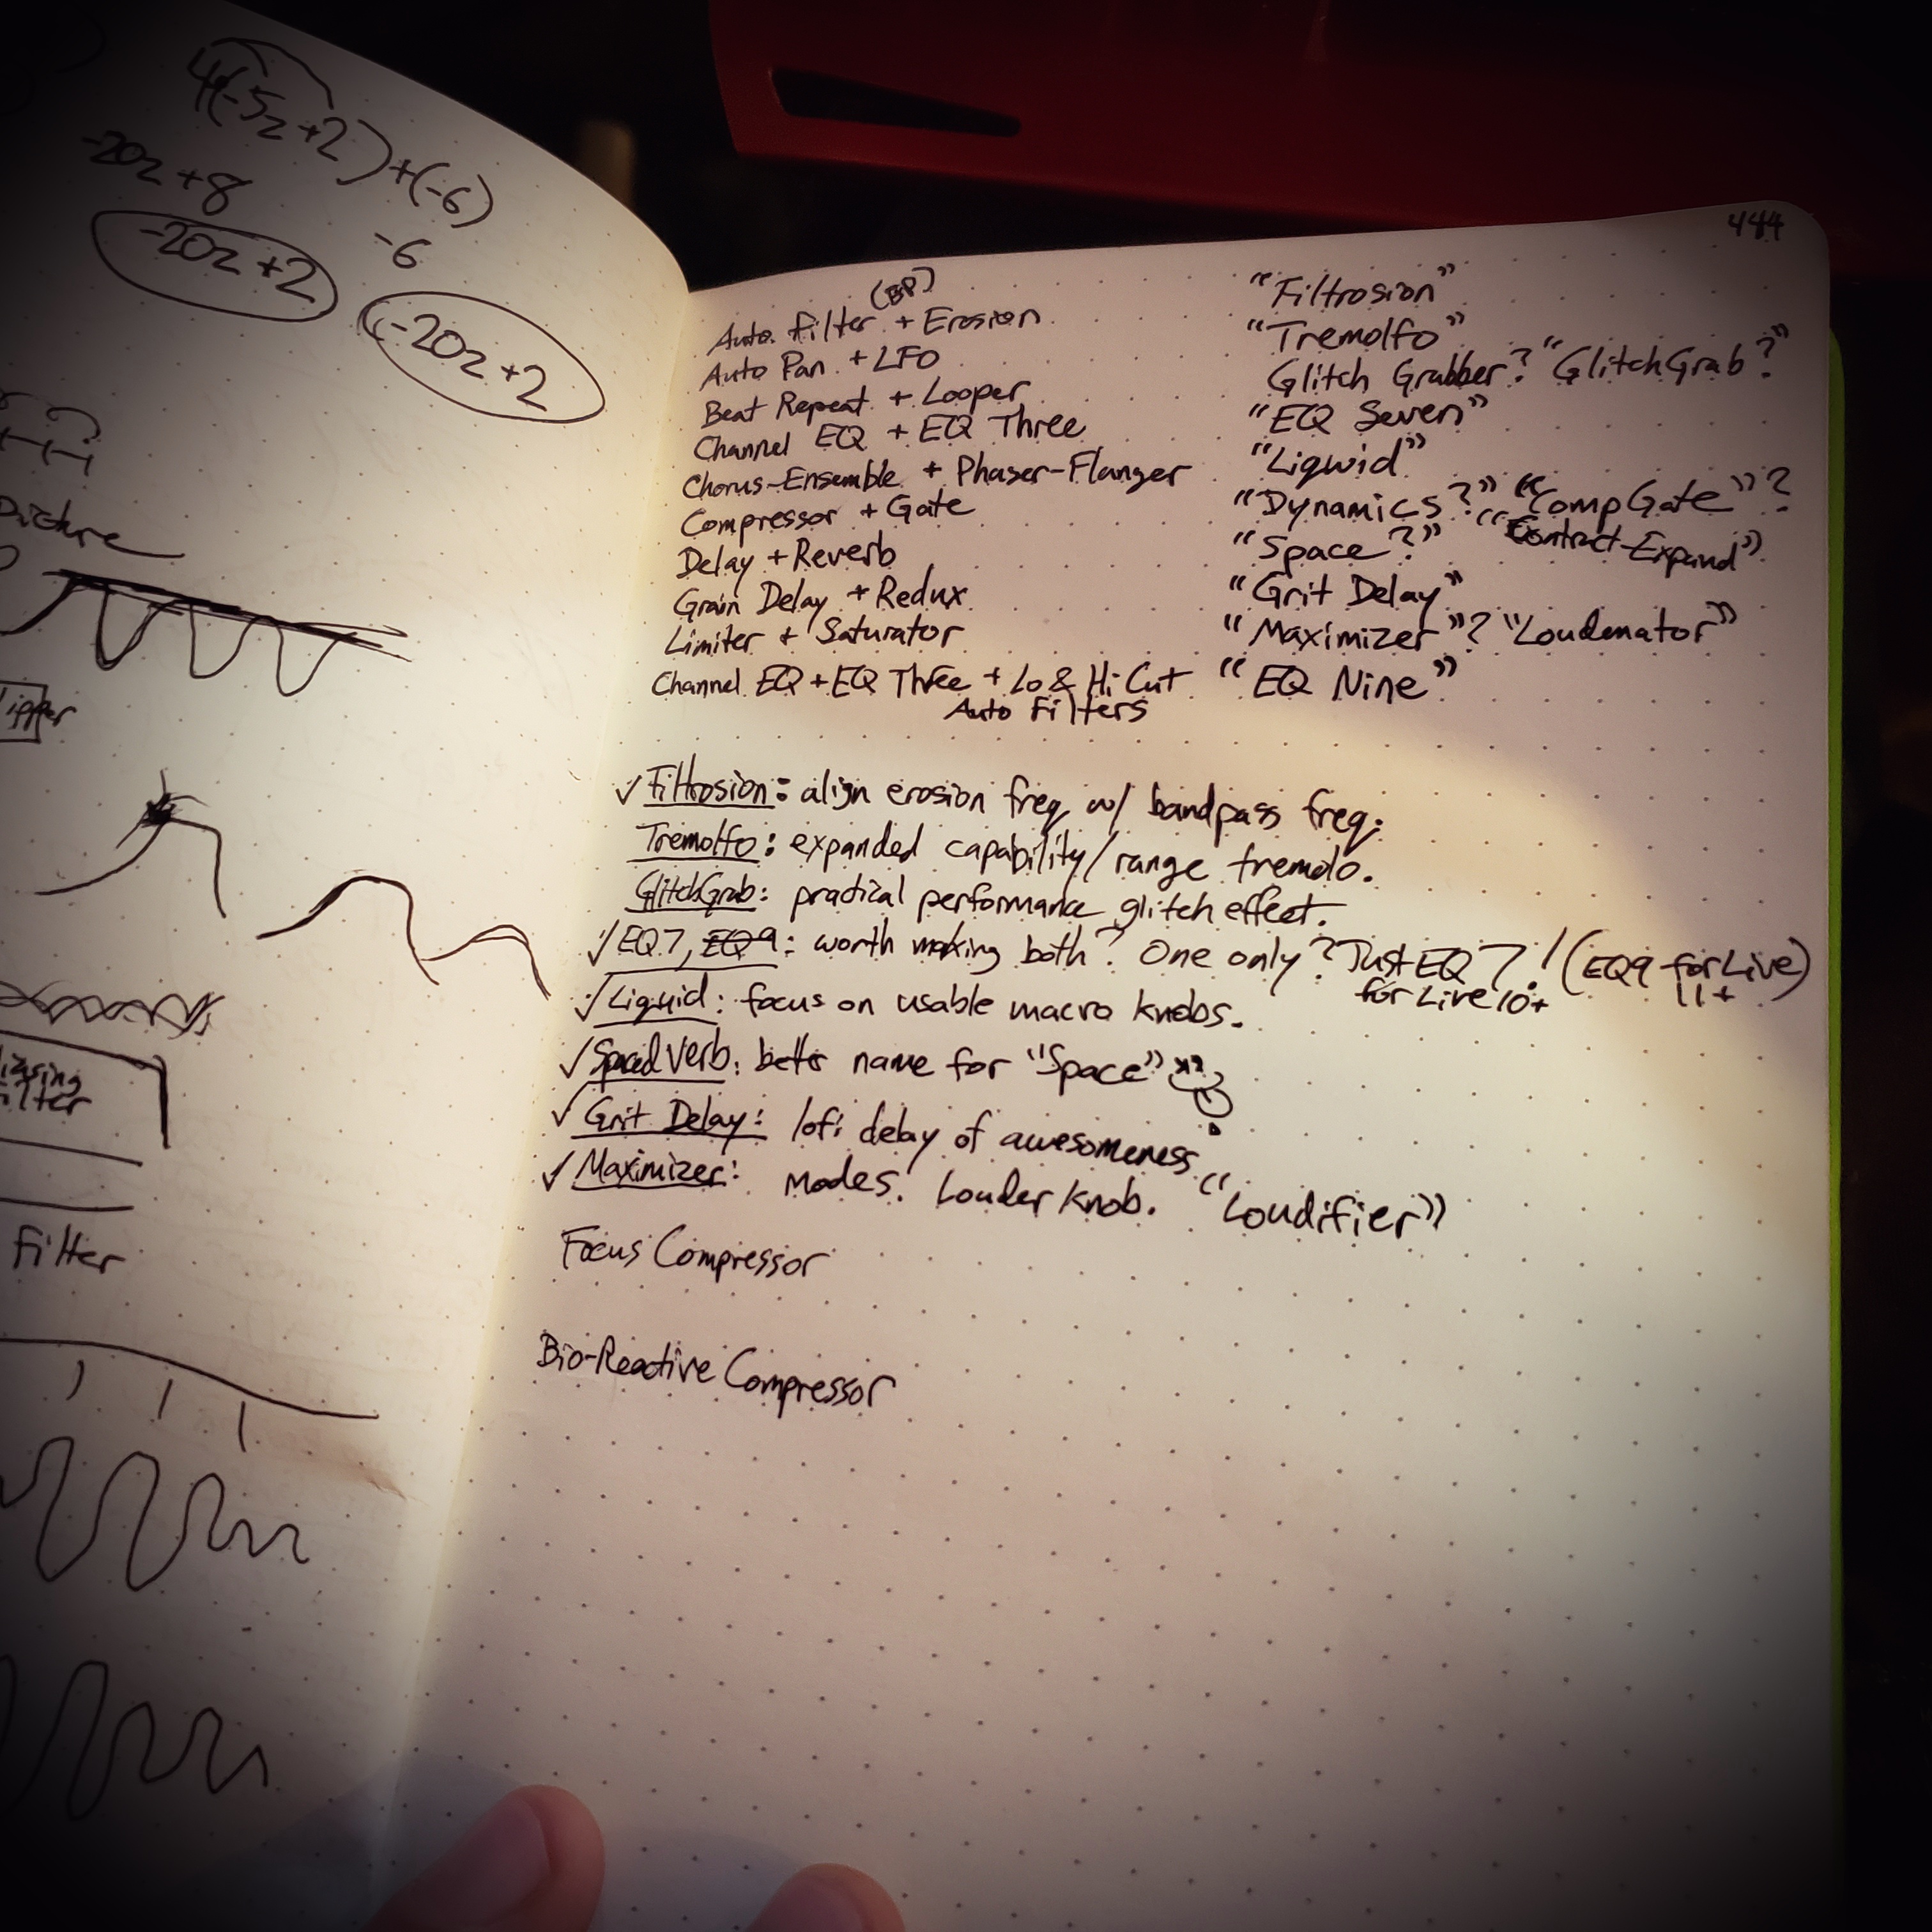 4(-5z+2)+(-6)
-20z+8
-6
-20z+2
(-20z+2
Picture
Filter
444
Auto Filter (BP) + Erosion "Filtrosion"
Auto Pan + LFO "Tremolfo"
Beat Repeat + Looper Glitch Grabber? "GlitchGrab?"
Channel EQ + EQ Three "EQ Seven"
Chorus-Ensemble + Phaser-Flanger "Liqwid"
Compressor + Gate "Dynamics?" "CompGate"?
"Contract-Expand"
Delay + Reverb "Space?"
Grain Delay + Redux "Grit Delay"
Limiter + Saturator "Maximizer"? "Loudenator"
Channel EQ + EQ Three + Lo & Hi Cut "EQ Nine"
Auto Filters
✓ Filtrosion: align erosion freq w/ bandpass freq.
Tremolfo: expanded capability/range tremolo.
GlitchGrab: practical performance glitch effect.
✓ EQ7, EQ9: worth making both? One only? Just EQ7! (EQ9 for Live
for Live 10+ 11+)
✓ Liquid: focus on usable macro knobs.
✓ SpacedVerb: better name for "Space"??
✓ Grit Delay: lofi delay of awesomeness.
✓ Maximizer: Modes. Louder Knob. "Loudifier"
Focus Compressor
Bio-Reactive Compressor